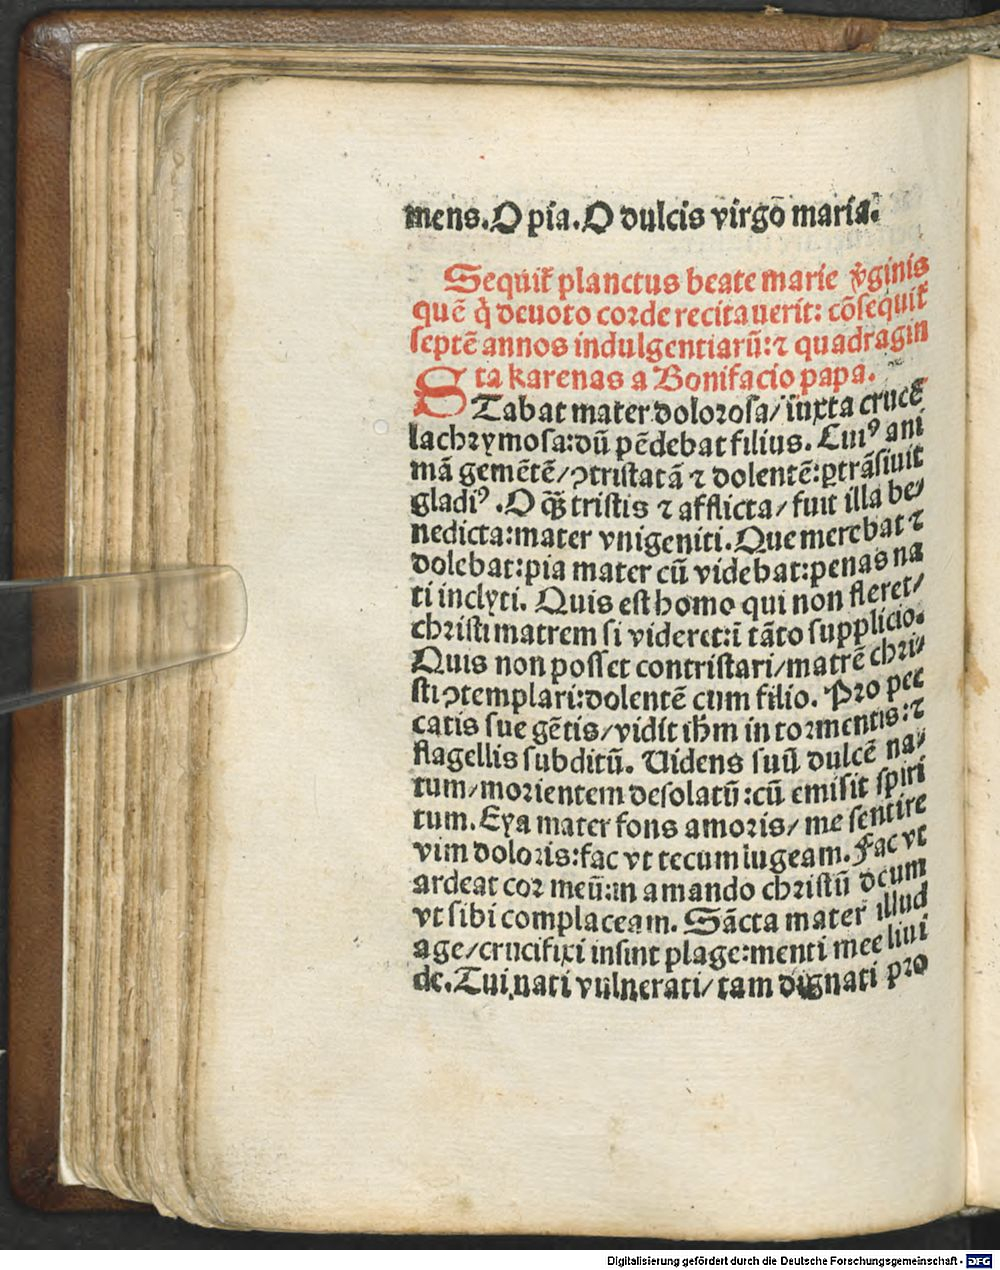 mens. O pia. O dulcis virgo᷒ maria.
Sequit᷑ planctus beate marie v̓ginis
quē q̇ deuoto corde recitauerit: cōsequit᷑
septē annos indulgentiarū: ⁊ quadragin
ta karenas a Bonifacio papa.
STabat mater dolorosa/ iuxta crucē
lachrymosa: dū pēdebat filius. Cuiꝰ ani
mā gemētē/ ꝯtristatā ⁊ dolentē: ꝑtrāsiuit
gladiꝰ. O q̄ꝫ tristis ⁊ afflicta/ fuit illa be/
nedicta: mater vnigeniti. Que merebat ⁊
dolebat: pia mater cū videbat: penas na
ti inclyti. Quis est homo qui non fleret/
christi matrem si videret: ī tāto supplicio.
Quis non posset contristari/ matrē chri/
sti ꝯtemplari: dolentē cum filio. Pro pec
catis sue gētis/ vidit ihm̄ in tormentis: ⁊
flagellis subditū. Uidens suū dulcē na/
tum/ morientem desolatū: cū emisit spiri
tum. Eya mater fons amoris/ me sentire
vim doloris: fac vt tecum lugeam. Fac vt
ardeat cor meū: in amando christū deum
vt sibi complaceam. Sācta mater illud
age/ crucifixi insint plage: menti mee liui
de. Tui nati vulnerati/ tam dignati pro
Digitalisierung gefördert durch die Deutsche Forschungsgemeinschaft - DFG